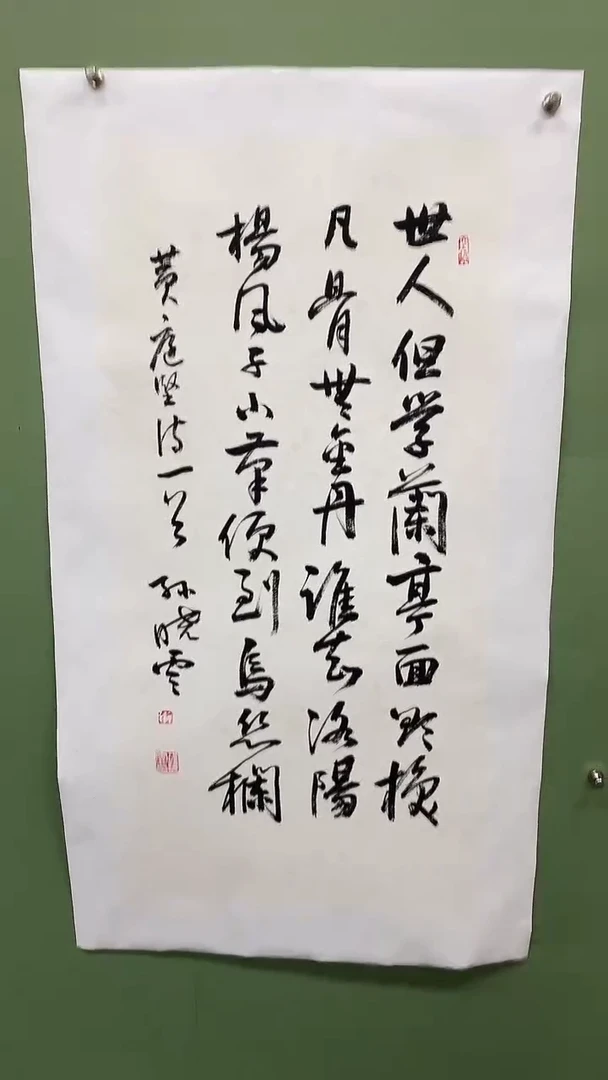 世人但学蘭亭面欲換
凡骨無金丹誰知洛陽
楊風子下筆便到烏絲欄
黄庭堅詩一首 孙曉雲